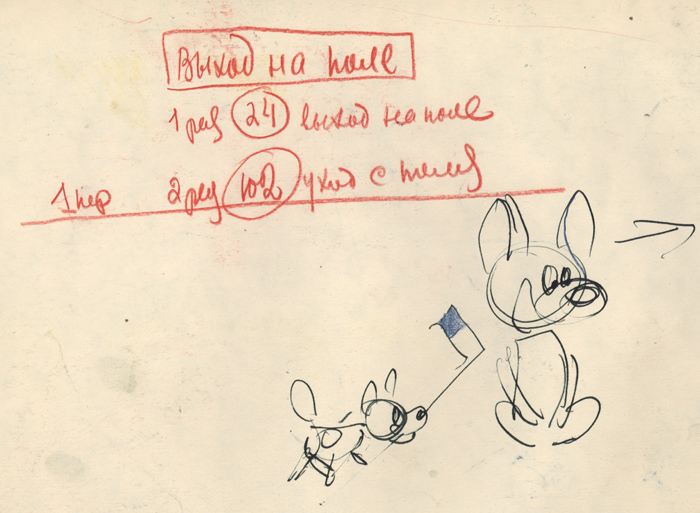 Выход на поле
1 раз 24 выход на поле
1 пер 2 раз 102 уход с поля